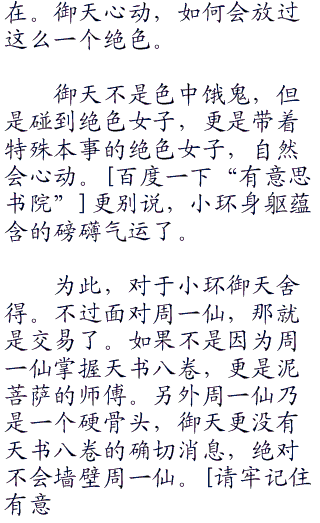 在。御天心动，如何会放过
这么一个绝色。
御天不是色中饿鬼，但
是碰到绝色女子，更是带着
特殊本事的绝色女子，自然
会心动。[百度一下“有意思
书院”]更别说，小环身躯蕴
含的磅礴气运了。
为此，对于小环御天舍
得。不过面对周一仙，那就
是交易了。如果不是因为周
一仙掌握天书八卷，更是泥
菩萨的师傅。另外周一仙乃
是一个硬骨头，御天更没有
天书八卷的确切消息，绝对
不会墙壁周一仙。[请牢记住
有意